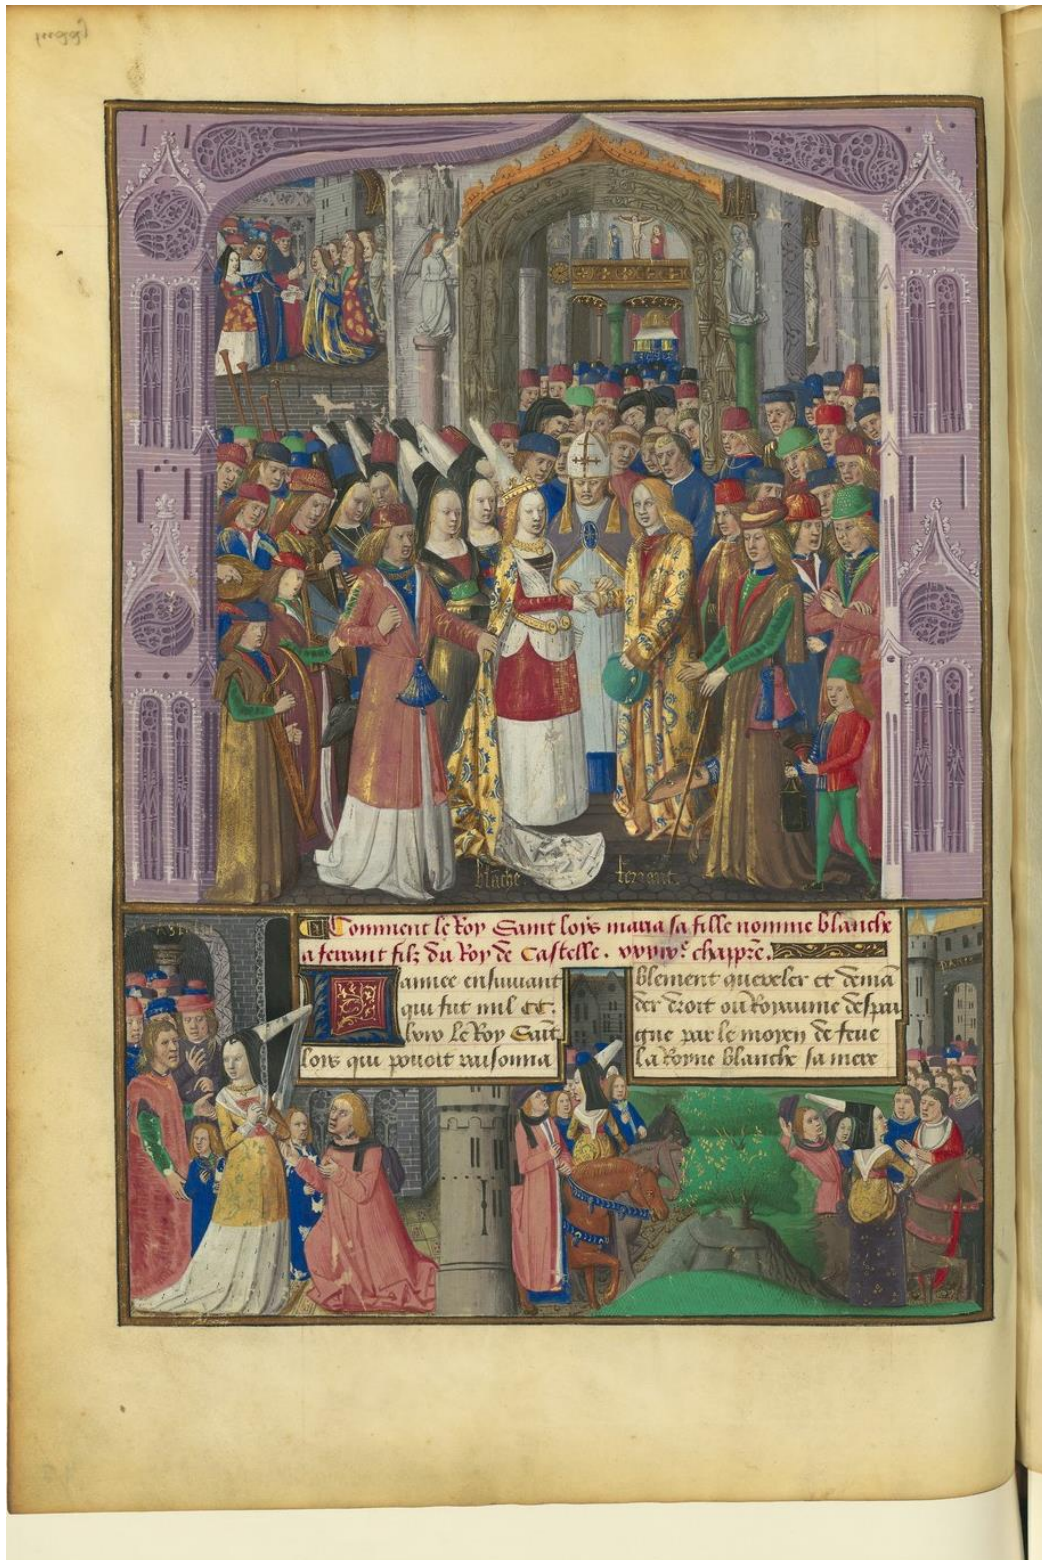 blāche
ferrant
Comment le Roy Saint loys maria sa fille nomme blanche
a ferrant filz du Roy de Castelle . xxxixe. chappre.
L annee ensuiuant
qui fut mil CC.
lxix Le Roy Sait
lois qui pouoit raisonna
blement quereler et demā
der droit ou Royaume despai
gne par le moyen de feue
la Royne blanche sa mere